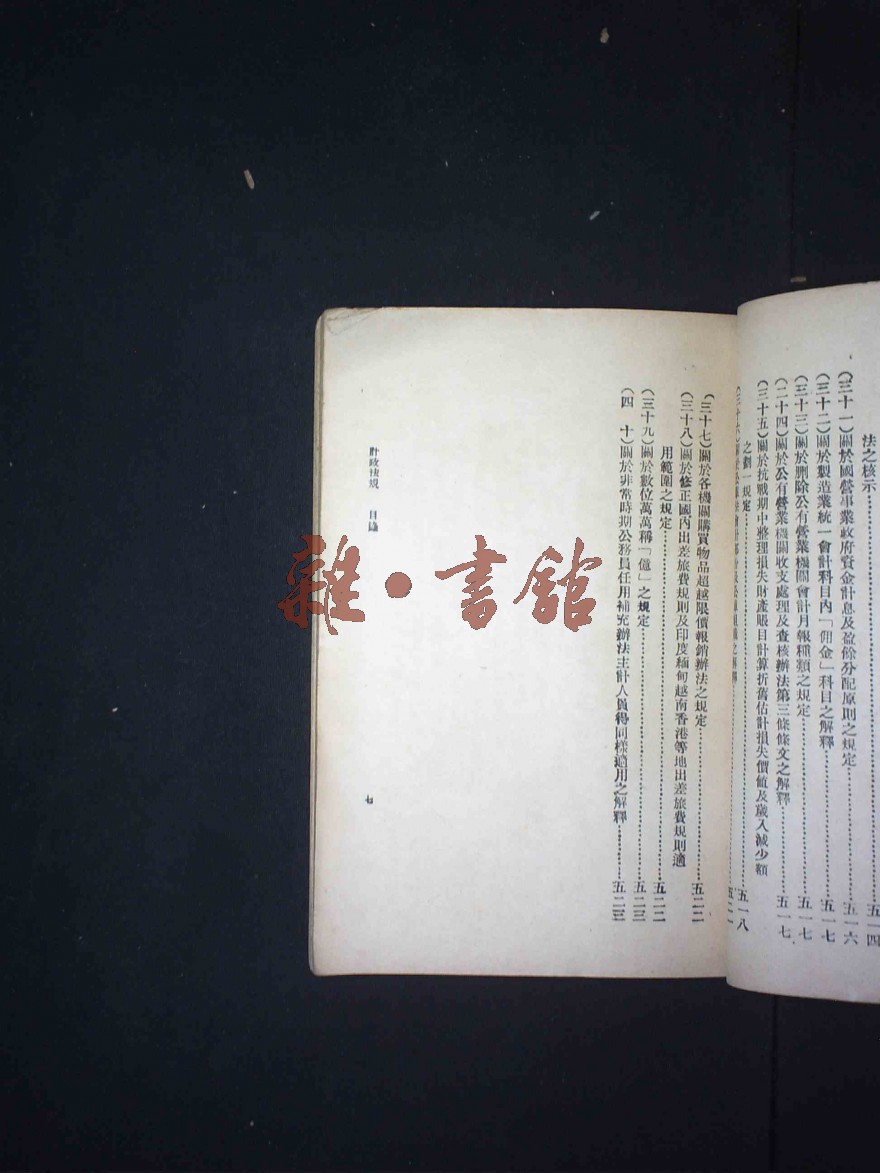 法之核示……五一四
(三十一)關於國營事業政府資金計息及盈餘分配原則之規定……五一六
(三十二)關於製造業統一會計科目內「佣金」科目之解釋……五一七
(三十三)關於刪除公有營業機關會計月報種類之規定……五一七
(二十四)關於公有營業機關收支處理及查核辦法第三條條文之解釋……五一七
(三十五)關於抗戰期中整理損失財產賬目計算折舊估計損失價值及歲入減少額
之劃一規定……五一八
(三十七)關於各機關購買物品超越限價報銷辦法之規定……五二二
(三十八)關於修正國內出差旅費規則及印度緬甸越南香港等地出差旅費規則適
用範圍之規定……五二二
(三十九)關於數位萬萬稱「億」之規定……五二三
(四 十)關於非常時期公務員任用補充辦法主計人員得同樣適用之解釋……五二三
財政法規 目錄
七
雜·書館